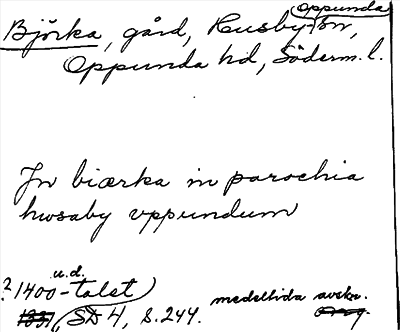 Björka, gård, Husby-Oppunda sn,
Oppunda hd, Söderm. l.
Jn biærka in parochia
hwsaby vppundum
u.d.
? 1400-talet)
1351 (SD 4, S. 244. medeltida avskr.